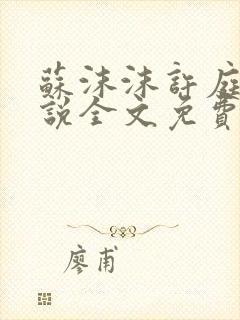 蘇沫沫許庭
說全文免費
廖甫